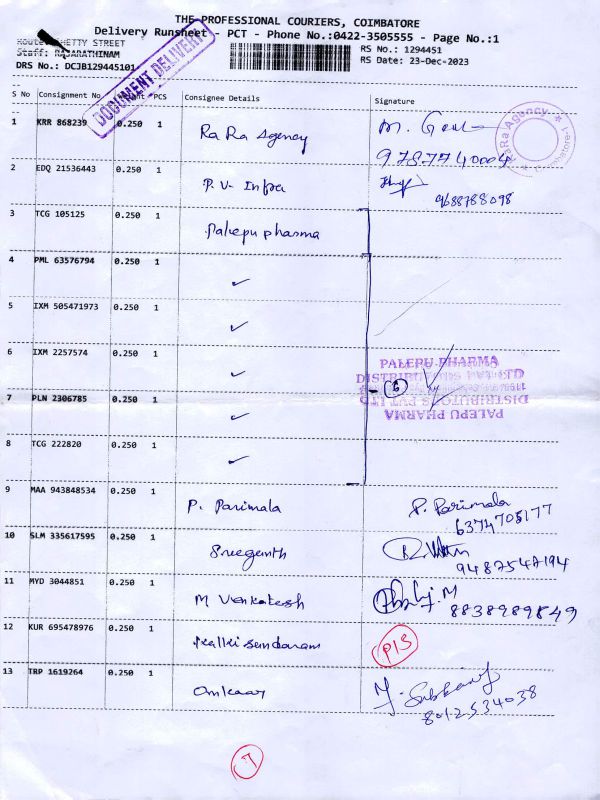 THE PROFESSIONAL COURIERS, COIMBATORE
Delivery Runsheet - PCT - Phone No.:0422-3505555 - Page No.:1
CHETTY STREET
Staff: RAJARATHINAM
RS No.: 1294451
DRS No.: DCJB129445101
RS Date: 23-Dec-2023
DOCUMENT DELIVERY
S No Consignment No PCS Consignee Details Signature
1 KRR 868239 0.250 1 Ra Ra Agency
9787740004
RaRa Agency Coimbatore-1
2 EDQ 21536443 0.250 1 P.V. Infra
9688788098
3 TCG 105125 0.250 1 Palepu pharma
4 PML 63576794 0.250 1 ✓
5 IXM 505471973 0.250 1 ✓
6 IXM 2257574 0.250 1 ✓
PALEPU PHARMA
7 PLN 2306785 0.250 1 ✓ 6
DISTRIBUTORS PVT LTD
PALEPU PHARMA
8 TCG 222820 0.250 1 ✓
9 MAA 943848534 0.250 1 P. Parimala P. Parimala
6374705177
10 SLM 335617595 0.250 1
9487547194
11 MYD 3044851 0.250 1 M Venkatesh
8838989849
12 KUR 695478976 0.250 1 Kalki Sundaram P13
13 TRP 1619264 0.250 1 Omkaar
8012534038
7